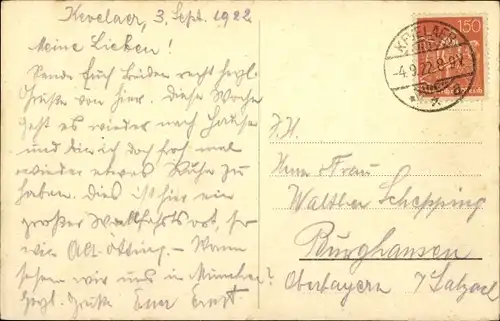 Kevelaer, 3. Sept. 1922
Meine Lieben!
Sende Euch beiden recht herzl.
Grüße von hier. Diese Woche
geht es wieder nach Hause
und bin ich doch froh mal
wieder etwas Ruhe zu
haben. Dies ist hier ein
großer Wallfahrtsort, so
wie Alt Ötting. – Wann
sehen wir uns in München?
Herzl. Grüße Euer Ernst
KEVELAER
-4.9.22.
150
Herrn & Frau
Walther Schepping
Burghausen
Oberbayern / Salzach